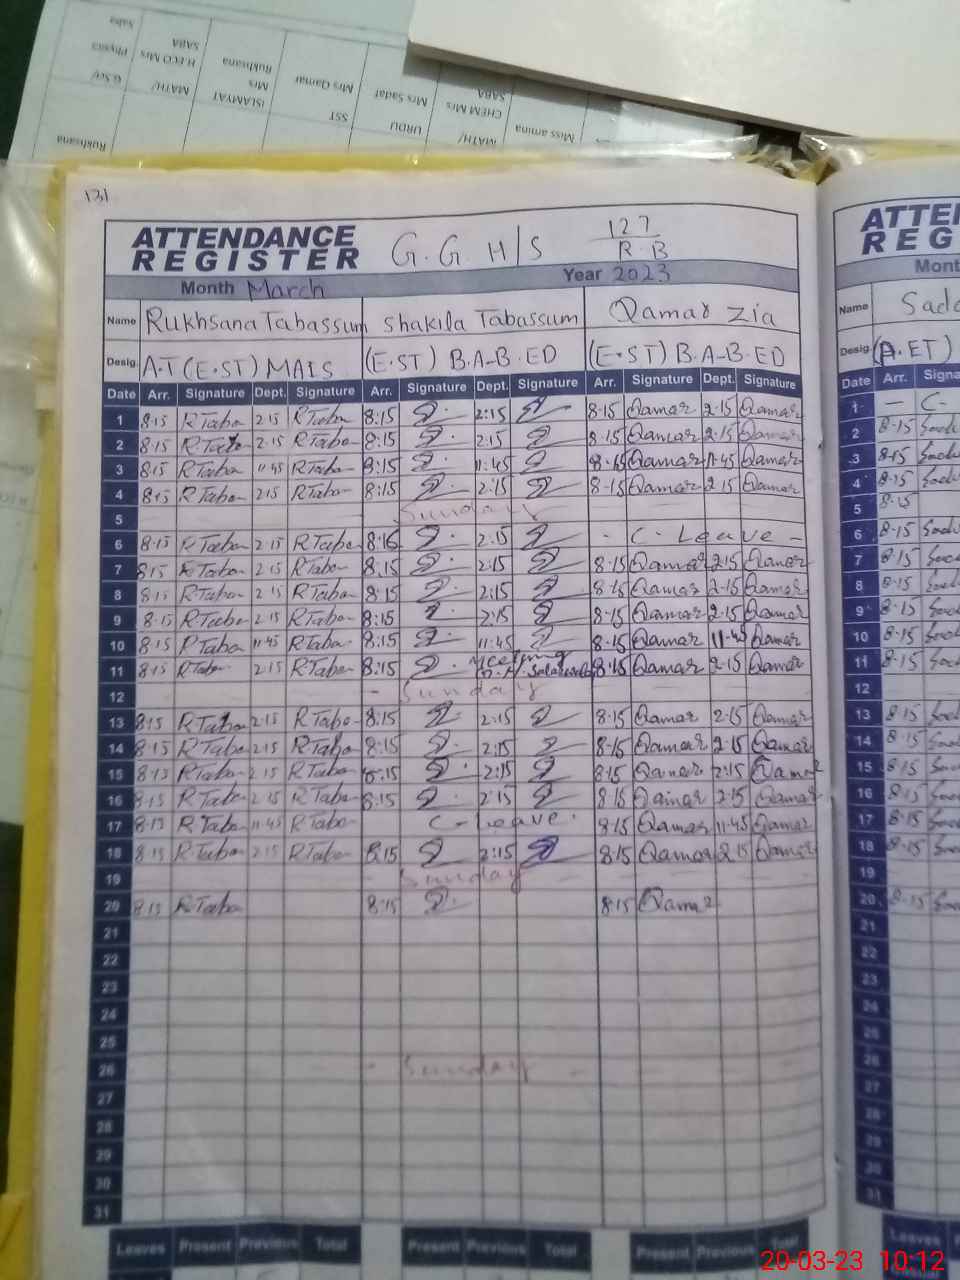 Saba
Physics
G.Sci/
SABA
H.ECO Mrs
MATH/
Rukhsana
Mrs
ISLAMYAT
Mrs Qamar
SST
Mrs Sadaf
URDU
SABA
CHEM Mrs
MATH/
Miss amina
Rukhsana
131
ATTENDANCE REGISTER G.G.H/S 127/R.B
Month March Year 2023
Name Rukhsana Tabassum Shakila Tabassum Qamar Zia
Desig. A.T (E.ST) MAIS (E.ST) B.A-B.ED (E.ST) B.A-B.ED
Date Arr. Signature Dept. Signature Arr. Signature Dept. Signature Arr. Signature Dept. Signature
1 8.15 R Taba 2.15 R Taba 8:15 2:15 8.15 Qamar 2.15 Qamar
2 8.15 R.Taba 2.15 R.Taba 8:15 2.15 8.15 Qamar 2.15 Qamar
3 8.15 R Taba 11.45 R Taba 8:15 11:45 8.15 Qamar 11.45 Qamar
4 8.15 R Taba 2.15 R Taba 8:15 2:15 8.15 Qamar 2.15 Qamar
5 Sunday
6 8.15 R Taba 2.15 R Taba 2:15 - C. Leave -
7 8.15 R Taba 2.15 R Taba 8:15 2:15 8.15 Qamar 2.15 Qamar
8 8.15 R Taba 2.15 R Taba 8:15 2:15 8.15 Qamar 2.15 Qamar
9 8.15 R Taba 2.15 R Taba 8:15 2:15 8.15 Qamar 2.15 Qamar
10 8.15 R Taba 11.45 R Taba 8:15 11:45 8.15 Qamar 11.45 Qamar
11 8.15 R Taba 2.15 R Taba 8:15 Meeting 8.15 Qamar 2.15 Qamar
12 - Sunday
13 8.15 R Taba 2.15 R Taba 8:15 2:15 8.15 Qamar 2.15 Qamar
14 8.15 R Taba 2.15 R Taba 8:15 2:15 8.15 Qamar 2.15 Qamar
15 8.15 R Taba 2.15 R Taba 8:15 2:15 8.15 Qamar 2:15 Qamar
16 8.15 R Taba 2.15 R Taba 8:15 2:15 8.15 Qamar 2.15 Qamar
17 8.15 R Taba 11.45 R Taba C-leave. 8.15 Qamar 11.45 Qamar
18 8.15 R Taba 2.15 R Taba 8:15 2:15 8.15 Qamar 2.15 Qamar
19 Sunday
20 8.15 R Taba 8:15 8.15 Qamar
21
22
23
24
25
26 - Sunday -
27
28
29
30
31
Leaves Present Previous Total Present Previous Total Present Previous Total
ATTEN
REG
Mont
Name Sada
Desig. (A.ET)
Date Arr. Signa
1 - C.
2 8.15
3 8.15
4 8.15
5 8.15
6 8.15
7 8.15
8 8.15
9 8.15
10 8.15
11 8.15
12
13 8.15
14 8.15
15 8.15
16 8.15
17 8.15
18 8.15
19
20 8.15
21
22
23
24
25
26
27
28
29
30
31
Leaves
20-03-23 10:12